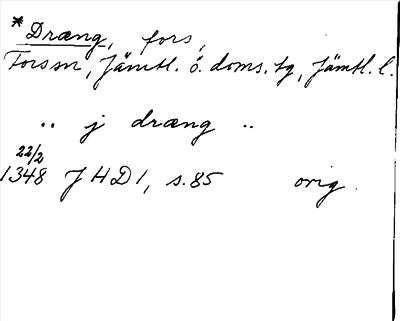 *Dræng, fors,
Forssn, Jämtl. ö. doms. tg, Jämtl. l.
.. j dræng ..
22/2
1348 JHD 1, s. 85 orig.